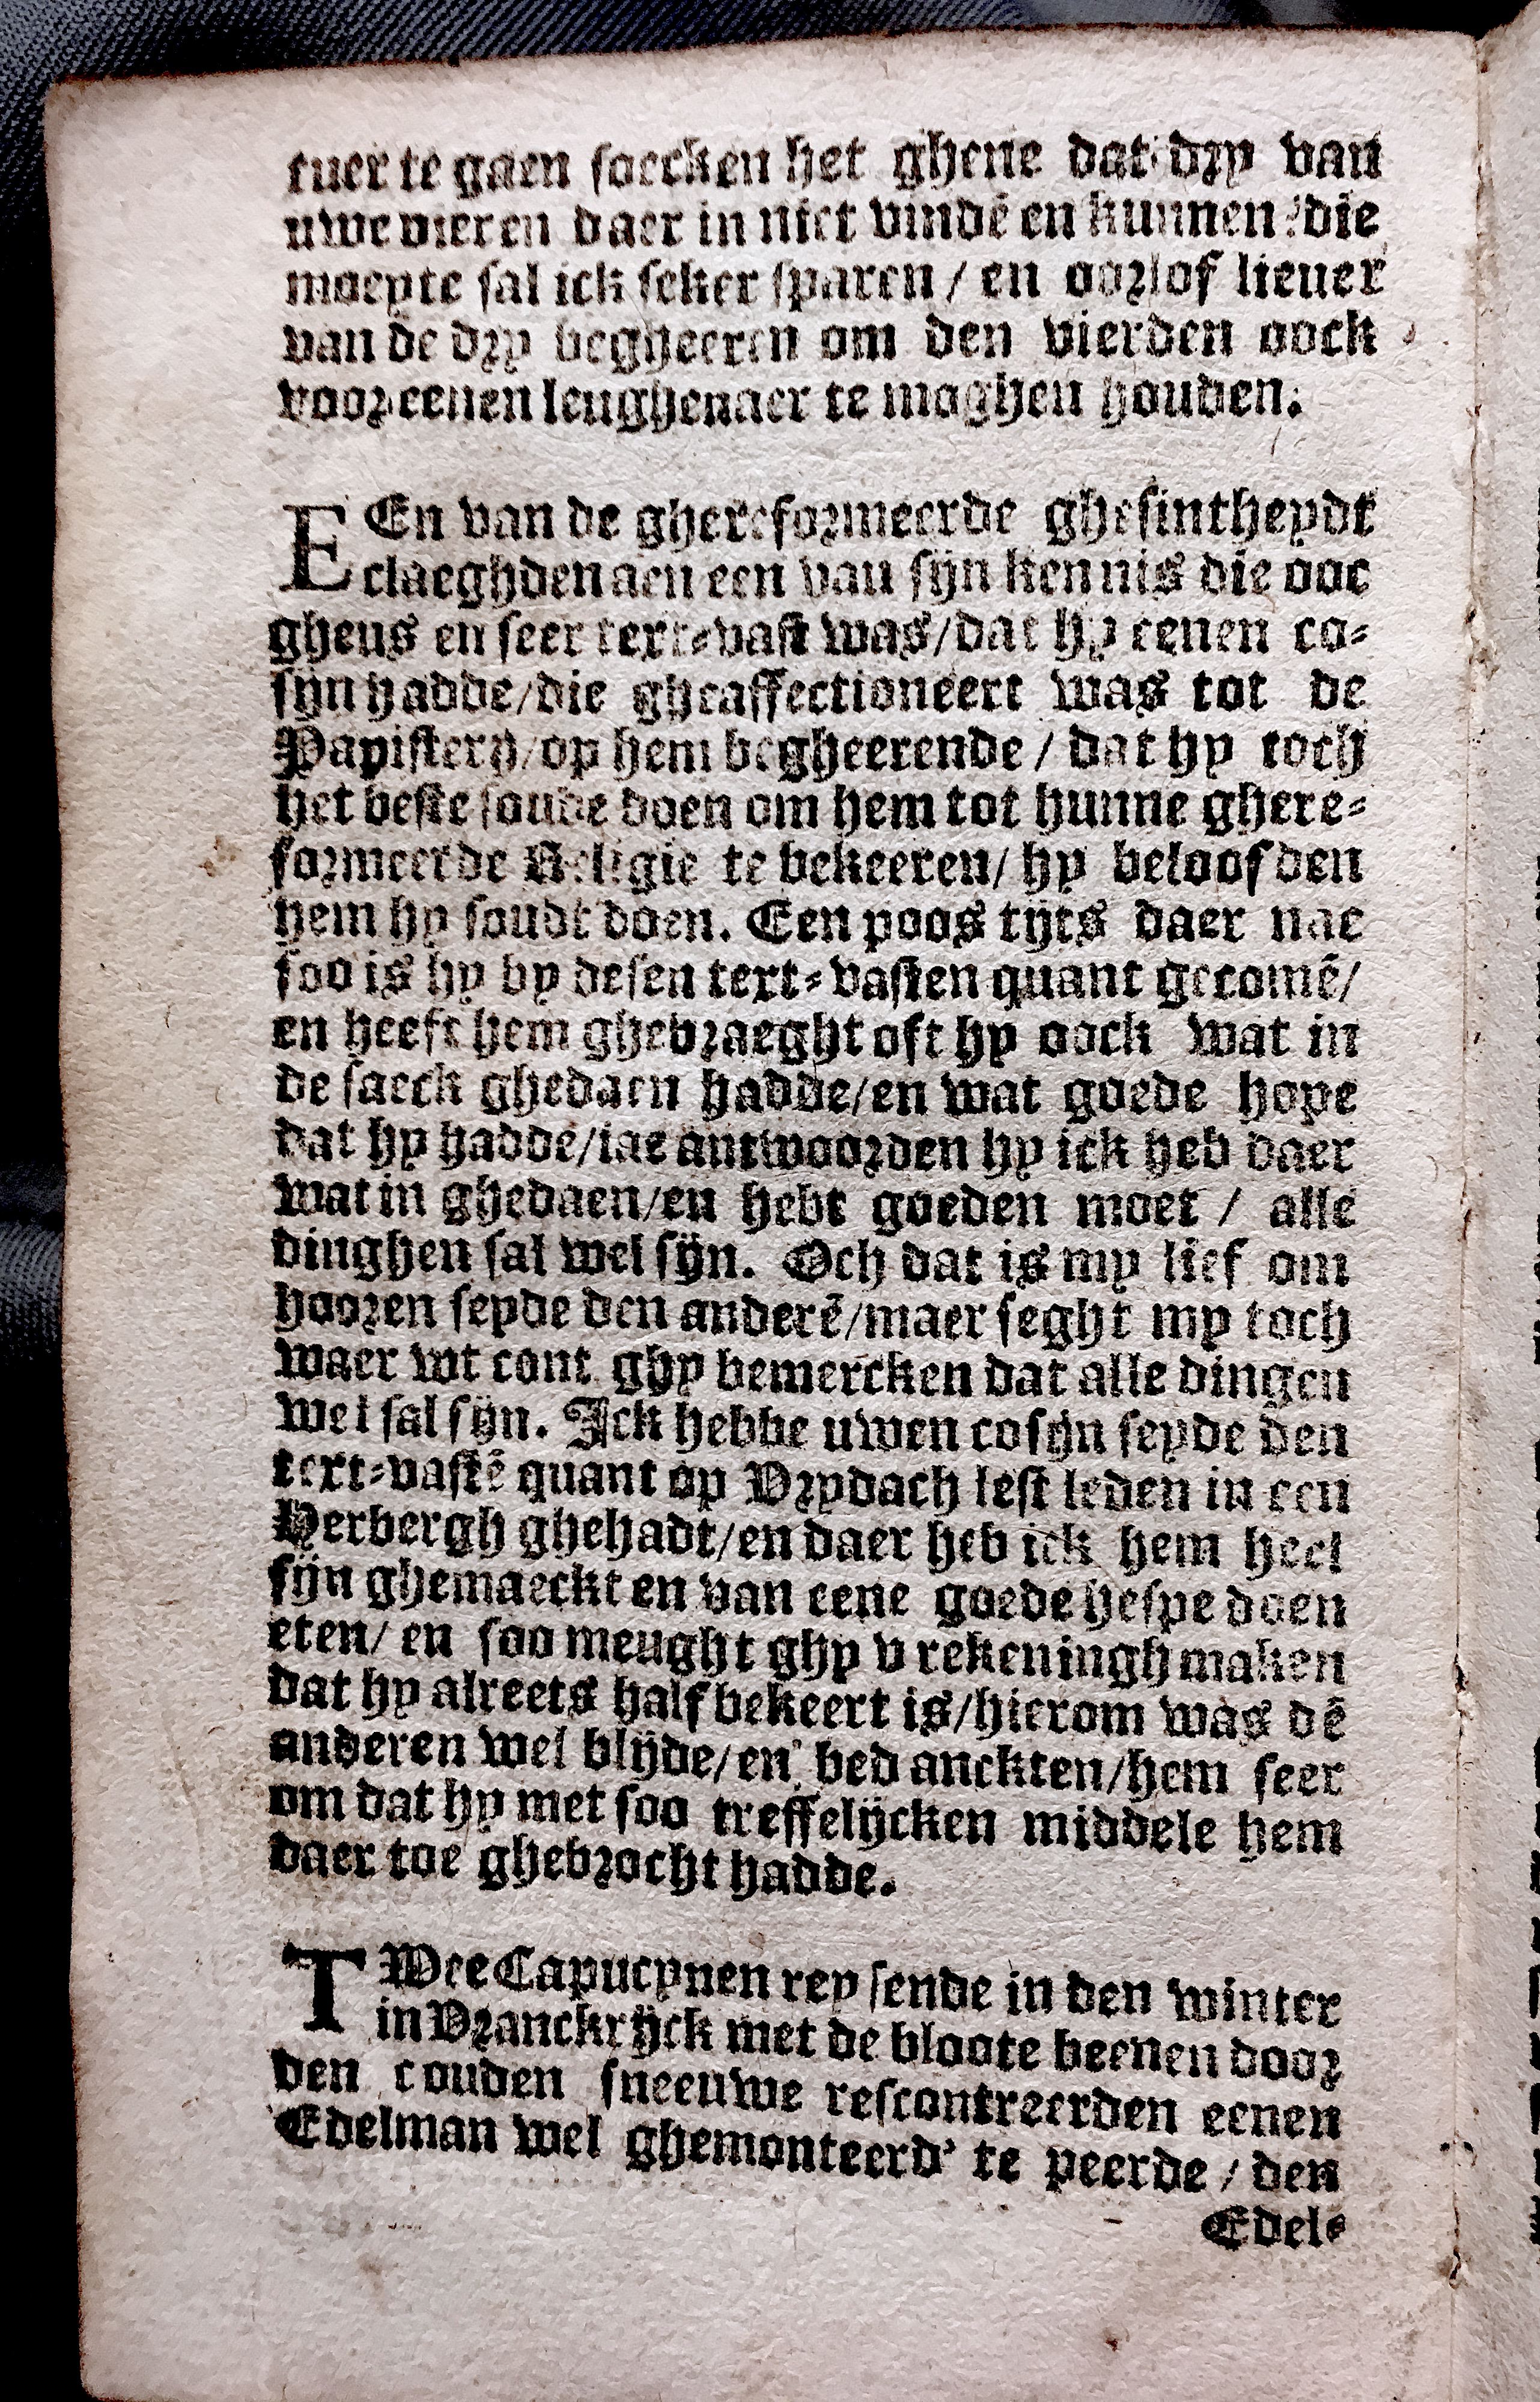 tuer te gaen soecken het ghene dat dry van
uwe vieren daer in niet vindē en kunnen: die
moeyte sal ick seker sparen / en oorlof liever
van de dry begheeren om den vierden oock
voor eenen leughenaer te moghen houden.
EEn van de ghereformeerde ghesintheydt
claeghden aen een van sijn kennis die ooc
gheus en seer text-vast was/dat hy eenen co-
sijn hadde/die gheaffectioneert was tot de
Papistery/op hem begheerende / dat hy toch
het beste soude doen om hem tot hunne ghere-
formeerde Religie te bekeeren/ hy beloofden
hem hy soudt doen. Een poos tijts daer nae
soo is hy by desen text-vasten quant gecomē/
en heeft hem ghevraeght oft hy oock wat in
de saeck ghedaen hadde/en wat goede hope
dat hy hadde/iae antwoorden hy ick heb daer
wat in ghedaen/en hebt goeden moet / alle
dinghen sal wel sijn. Och dat is my lief om
hooren seyde den anderē/maer seght my toch
waer wt cont ghy bemercken dat alle dingen
wel sal sijn. Ick hebbe uwen cosijn seyde den
text-vastē quant op Vrydach lest leden in een
Herbergh ghehadt/en daer heb ick hem heel
fijn ghemaeckt en van eene goede hespe doen
eten/ en soo meught ghy v rekeningh maken
dat hy alreets half bekeert is/hierom was dē
anderen wel blijde/en bedanckten/hem seer
om dat hy met soo treffelijcken middele hem
daer toe ghebrocht hadde.
TWee Capucynen reysende in den winter
in Vranckrijck met de bloote beenen door
den couden sneeuwe rescontreerden eenen
Edelman wel ghemonteerd' te peerde / den
Edel-